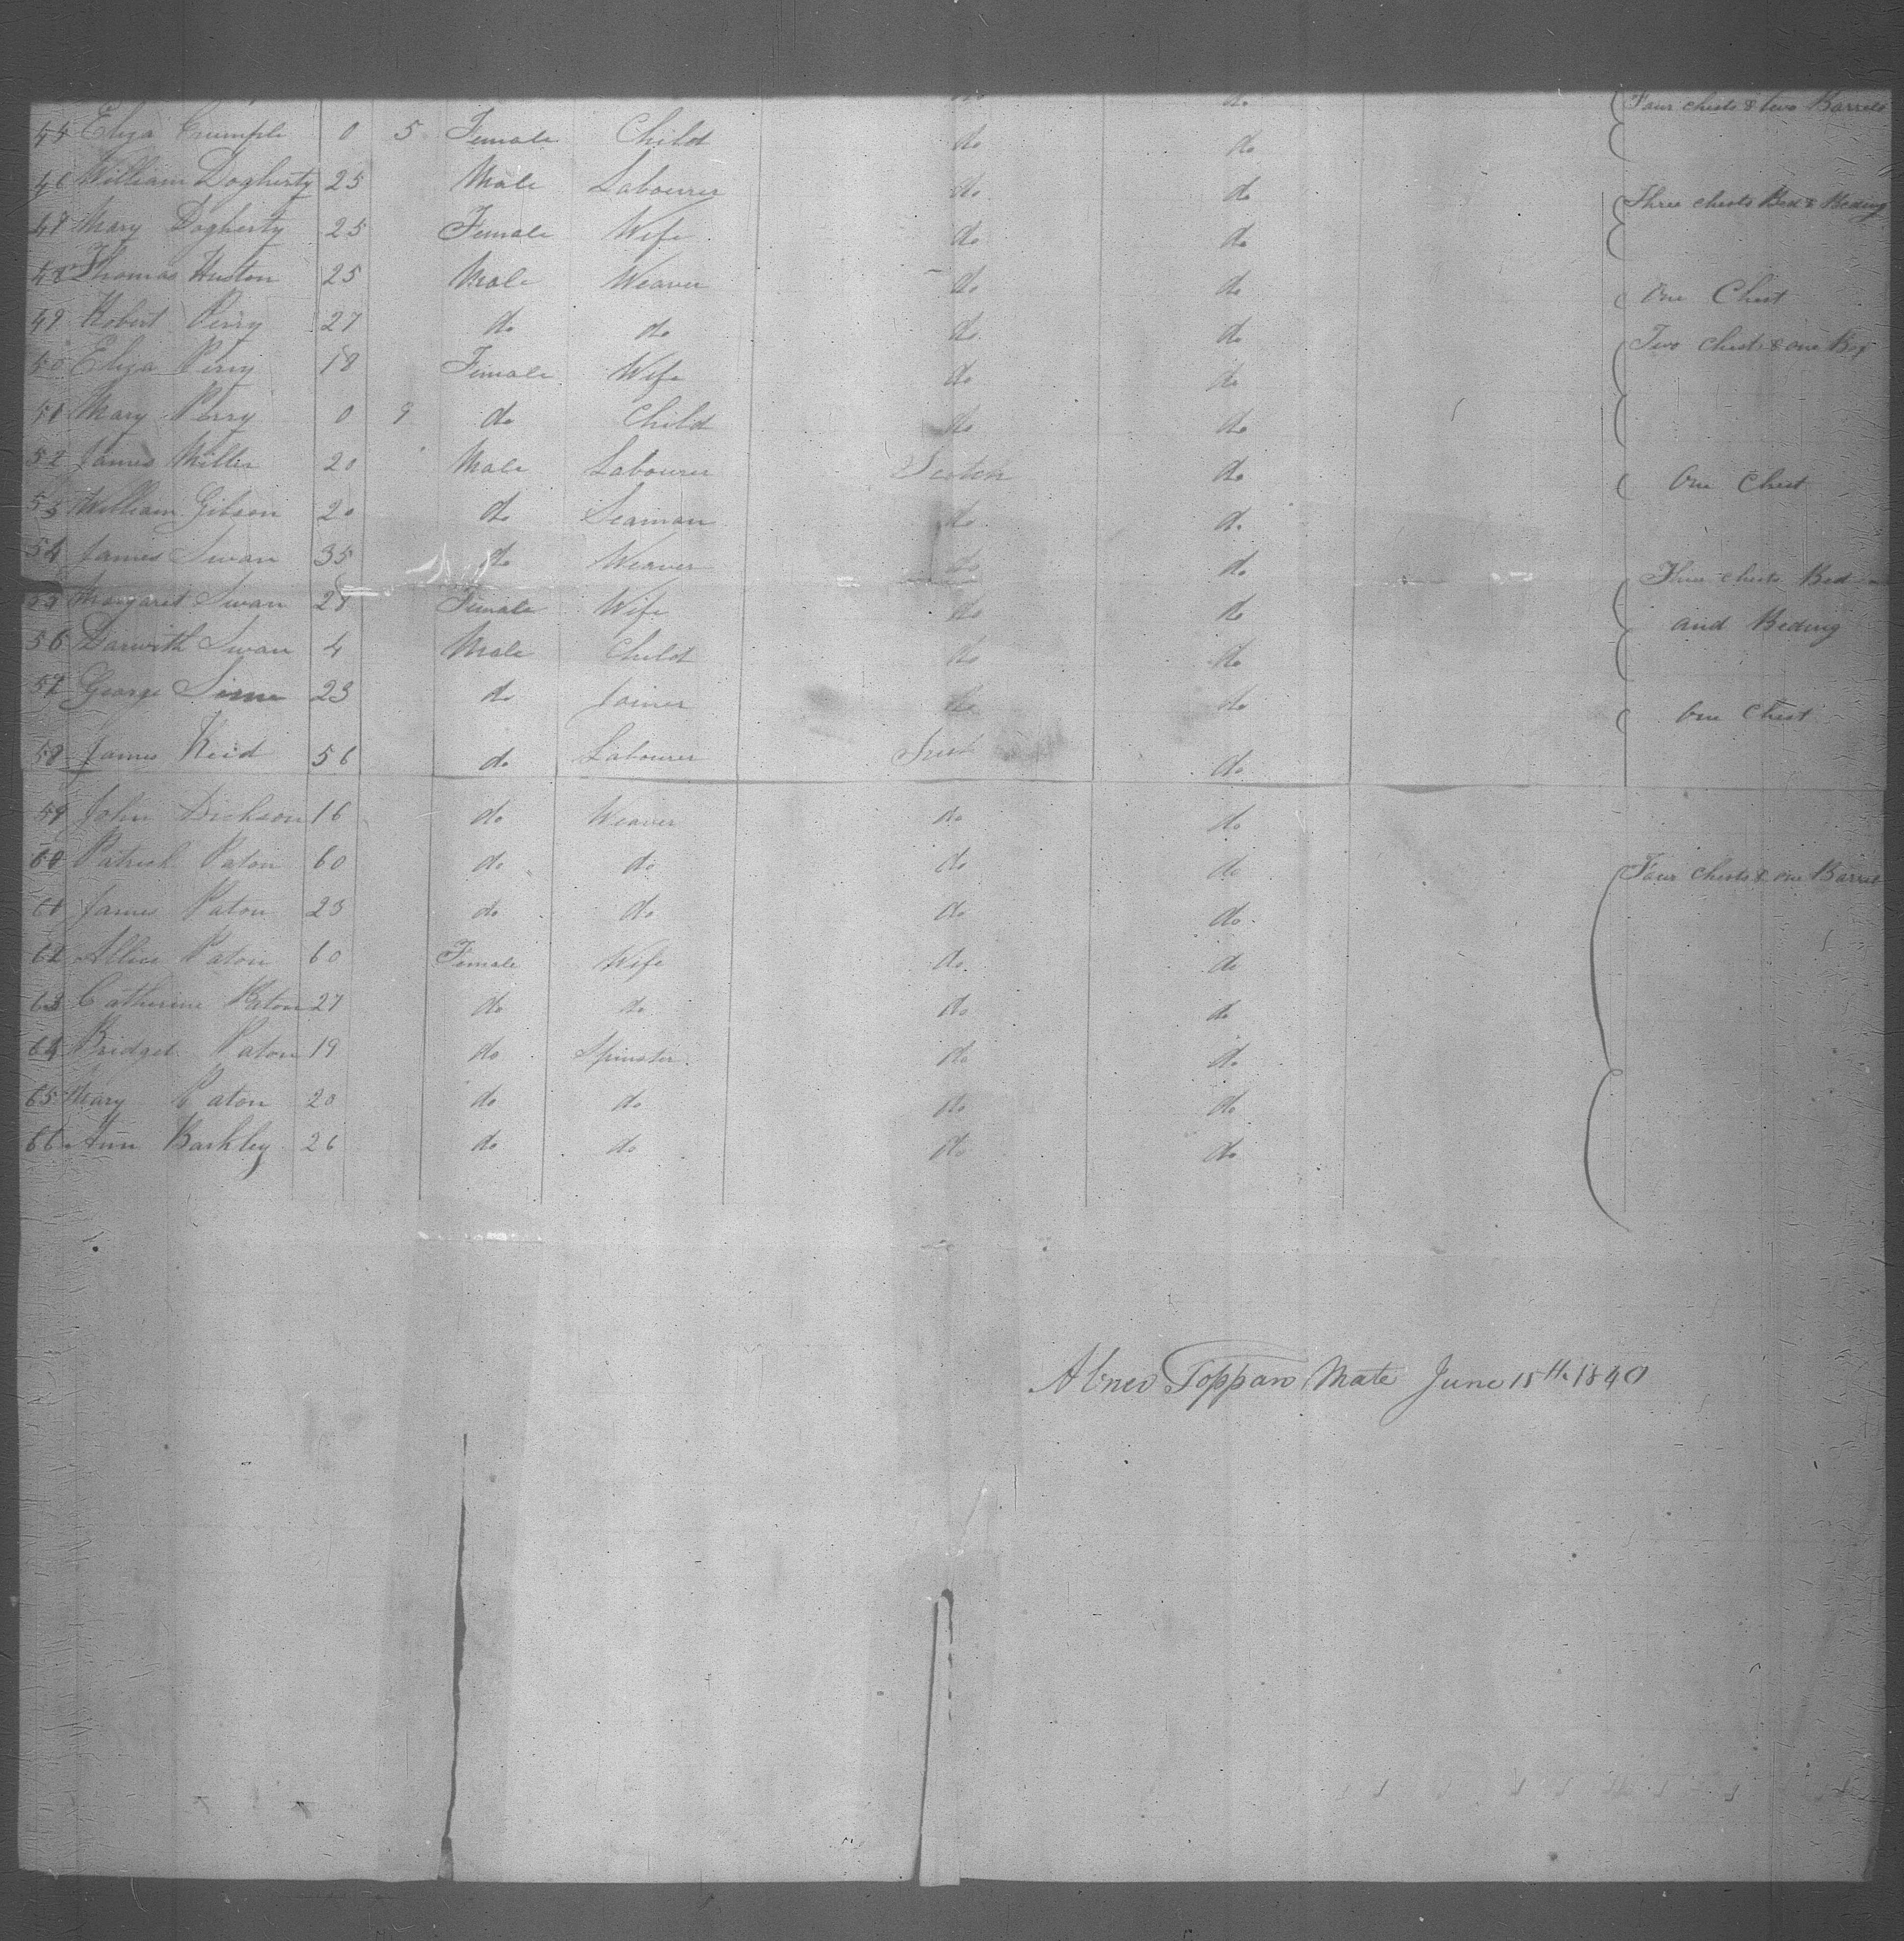 do do Four chests & two Barrels
45 Eliza Crumple 0 5 Female Child do do
46 William Dogherty 25 Male Labourer do do Three chests Bed & Beding
47 Mary Dogherty 25 Female Wife do do
48 Thomas Huston 25 Male Weaver do do One Chest
49 Robert Perry 27 do do do do Two chests & one Box
50 Eliza Perry 18 Female Wife do do
51 Mary Perry 0 9 do Child do do
52 James Miller 20 Male Labourer Scotch do One Chest
53 William Gibson 20 do Seaman do do
54 James Swan 35 do Weaver do do Three chests Bed
55 Margaret Swan 28 Female Wife do do and Beding
56 Swan 4 Male Child do do
57 George Sime 23 do Joiner do do One Chest
58 James Reid 56 do Labourer Irish do
59 John Dickson 16 do Weaver do do
60 Patrick Paton 60 do do do do Four Chests & one Barrel
61 James Paton 25 do do do do
62 Allice Paton 60 Female Wife do do
63 Catherine Paton 27 do do do do
64 Bridget Paton 19 do Spinster do do
65 Mary Paton 20 do do do do
66 Ann Barkley 26 do do do do
Abner Toppan Mate June 15th 1840